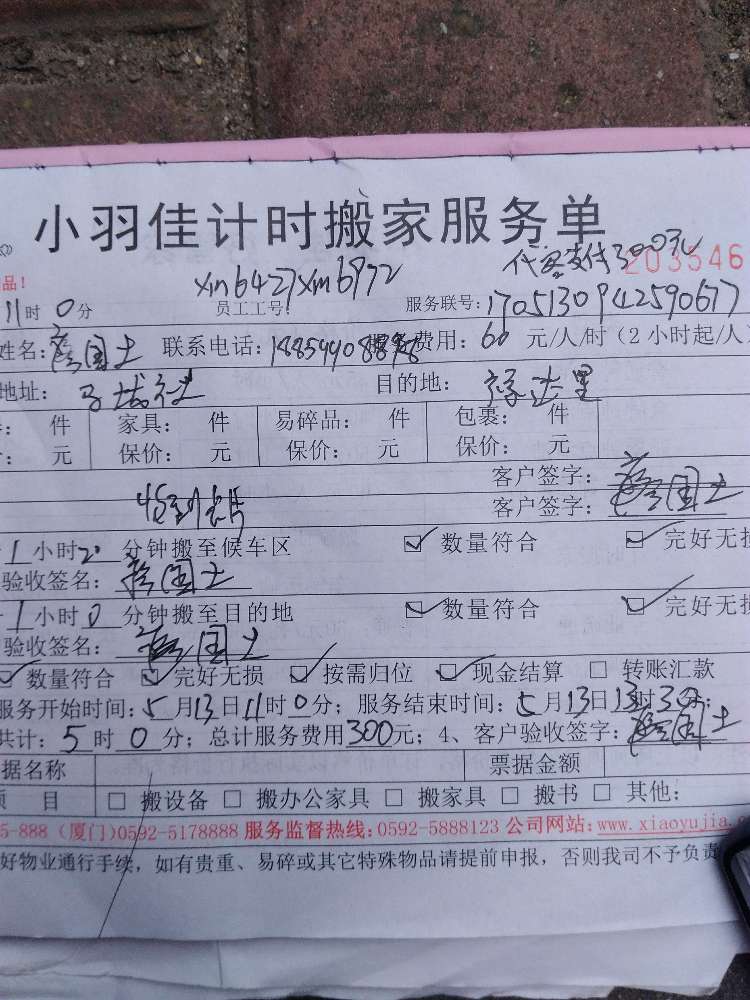 小羽佳计时搬家服务单
代客支付300元
203546
品！
xm6427xm6972
11时0分 员工工号： 服务联号：1705130942590677
姓名： 国土 联系电话： 费用：60 元/人/时（2小时起/人
地址： 目的地：
： 件 家具： 件 易碎品： 件 包裹： 件
： 元 保价： 元 保价： 元 保价： 元
客户签字：
客户签字： 国土
1小时20分钟搬至候车区 数量符合 完好无损
验收签名： 国土
1小时0分钟搬至目的地 数量符合 完好无损
验收签名： 国土
数量符合 完好无损 按需归位 现金结算 转账汇款
服务开始时间：5月13日11时0分；服务结束时间：5月13日13时30分；
共计：5时0分；总计服务费用300元；4、客户验收签字： 国土
据名称 票据金额
项 目 搬设备 搬办公家具 搬家具 搬书 其他：
5-888（厦门）0592-5178888 服务监督热线：0592-5888123 公司网站：www.xiaoyujia.c
好物业通行手续，如有贵重、易碎或其它特殊物品请提前申报，否则我司不予负责